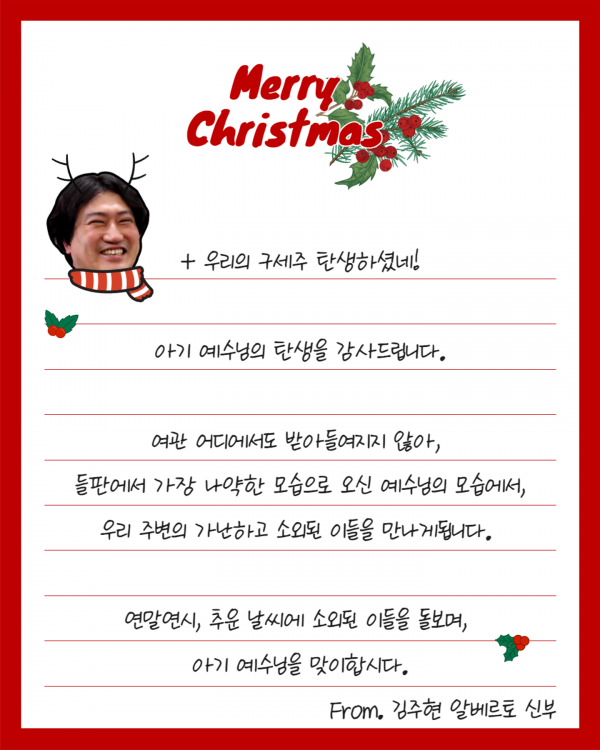 Merry
Christmas
+ 우리의 구세주 탄생하셨네!
아기 예수님의 탄생을 감사드립니다.
여관 어디에서도 받아들여지지 않아,
들판에서 가장 나약한 모습으로 오신 예수님의 모습에서,
우리 주변의 가난하고 소외된 이들을 만나게됩니다.
연말연시, 추운 날씨에 소외된 이들을 돌보며,
아기 예수님을 맞이합시다.
From. 김주현 알베르토 신부